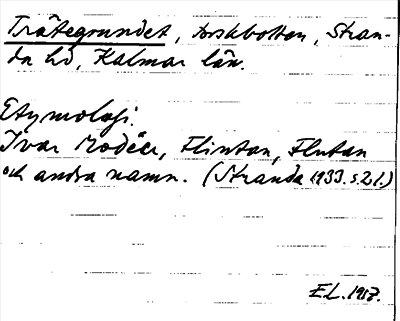 Trätegrundet, torskbotten, Stran-
da hd, Kalmar län.
Etymologi.
Ivar Modéer, Flintan, Flutan
och andra namn. (Stranda 1933. s. 21.)
E.L. 1917.